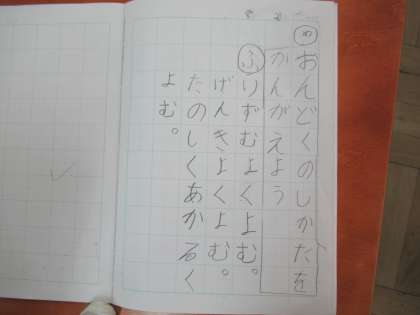 め
おんどくのしかたを
かんがえよう
ふ
りずむよくよむ。
げんきよくよむ。
たのしくあかるく
よむ。